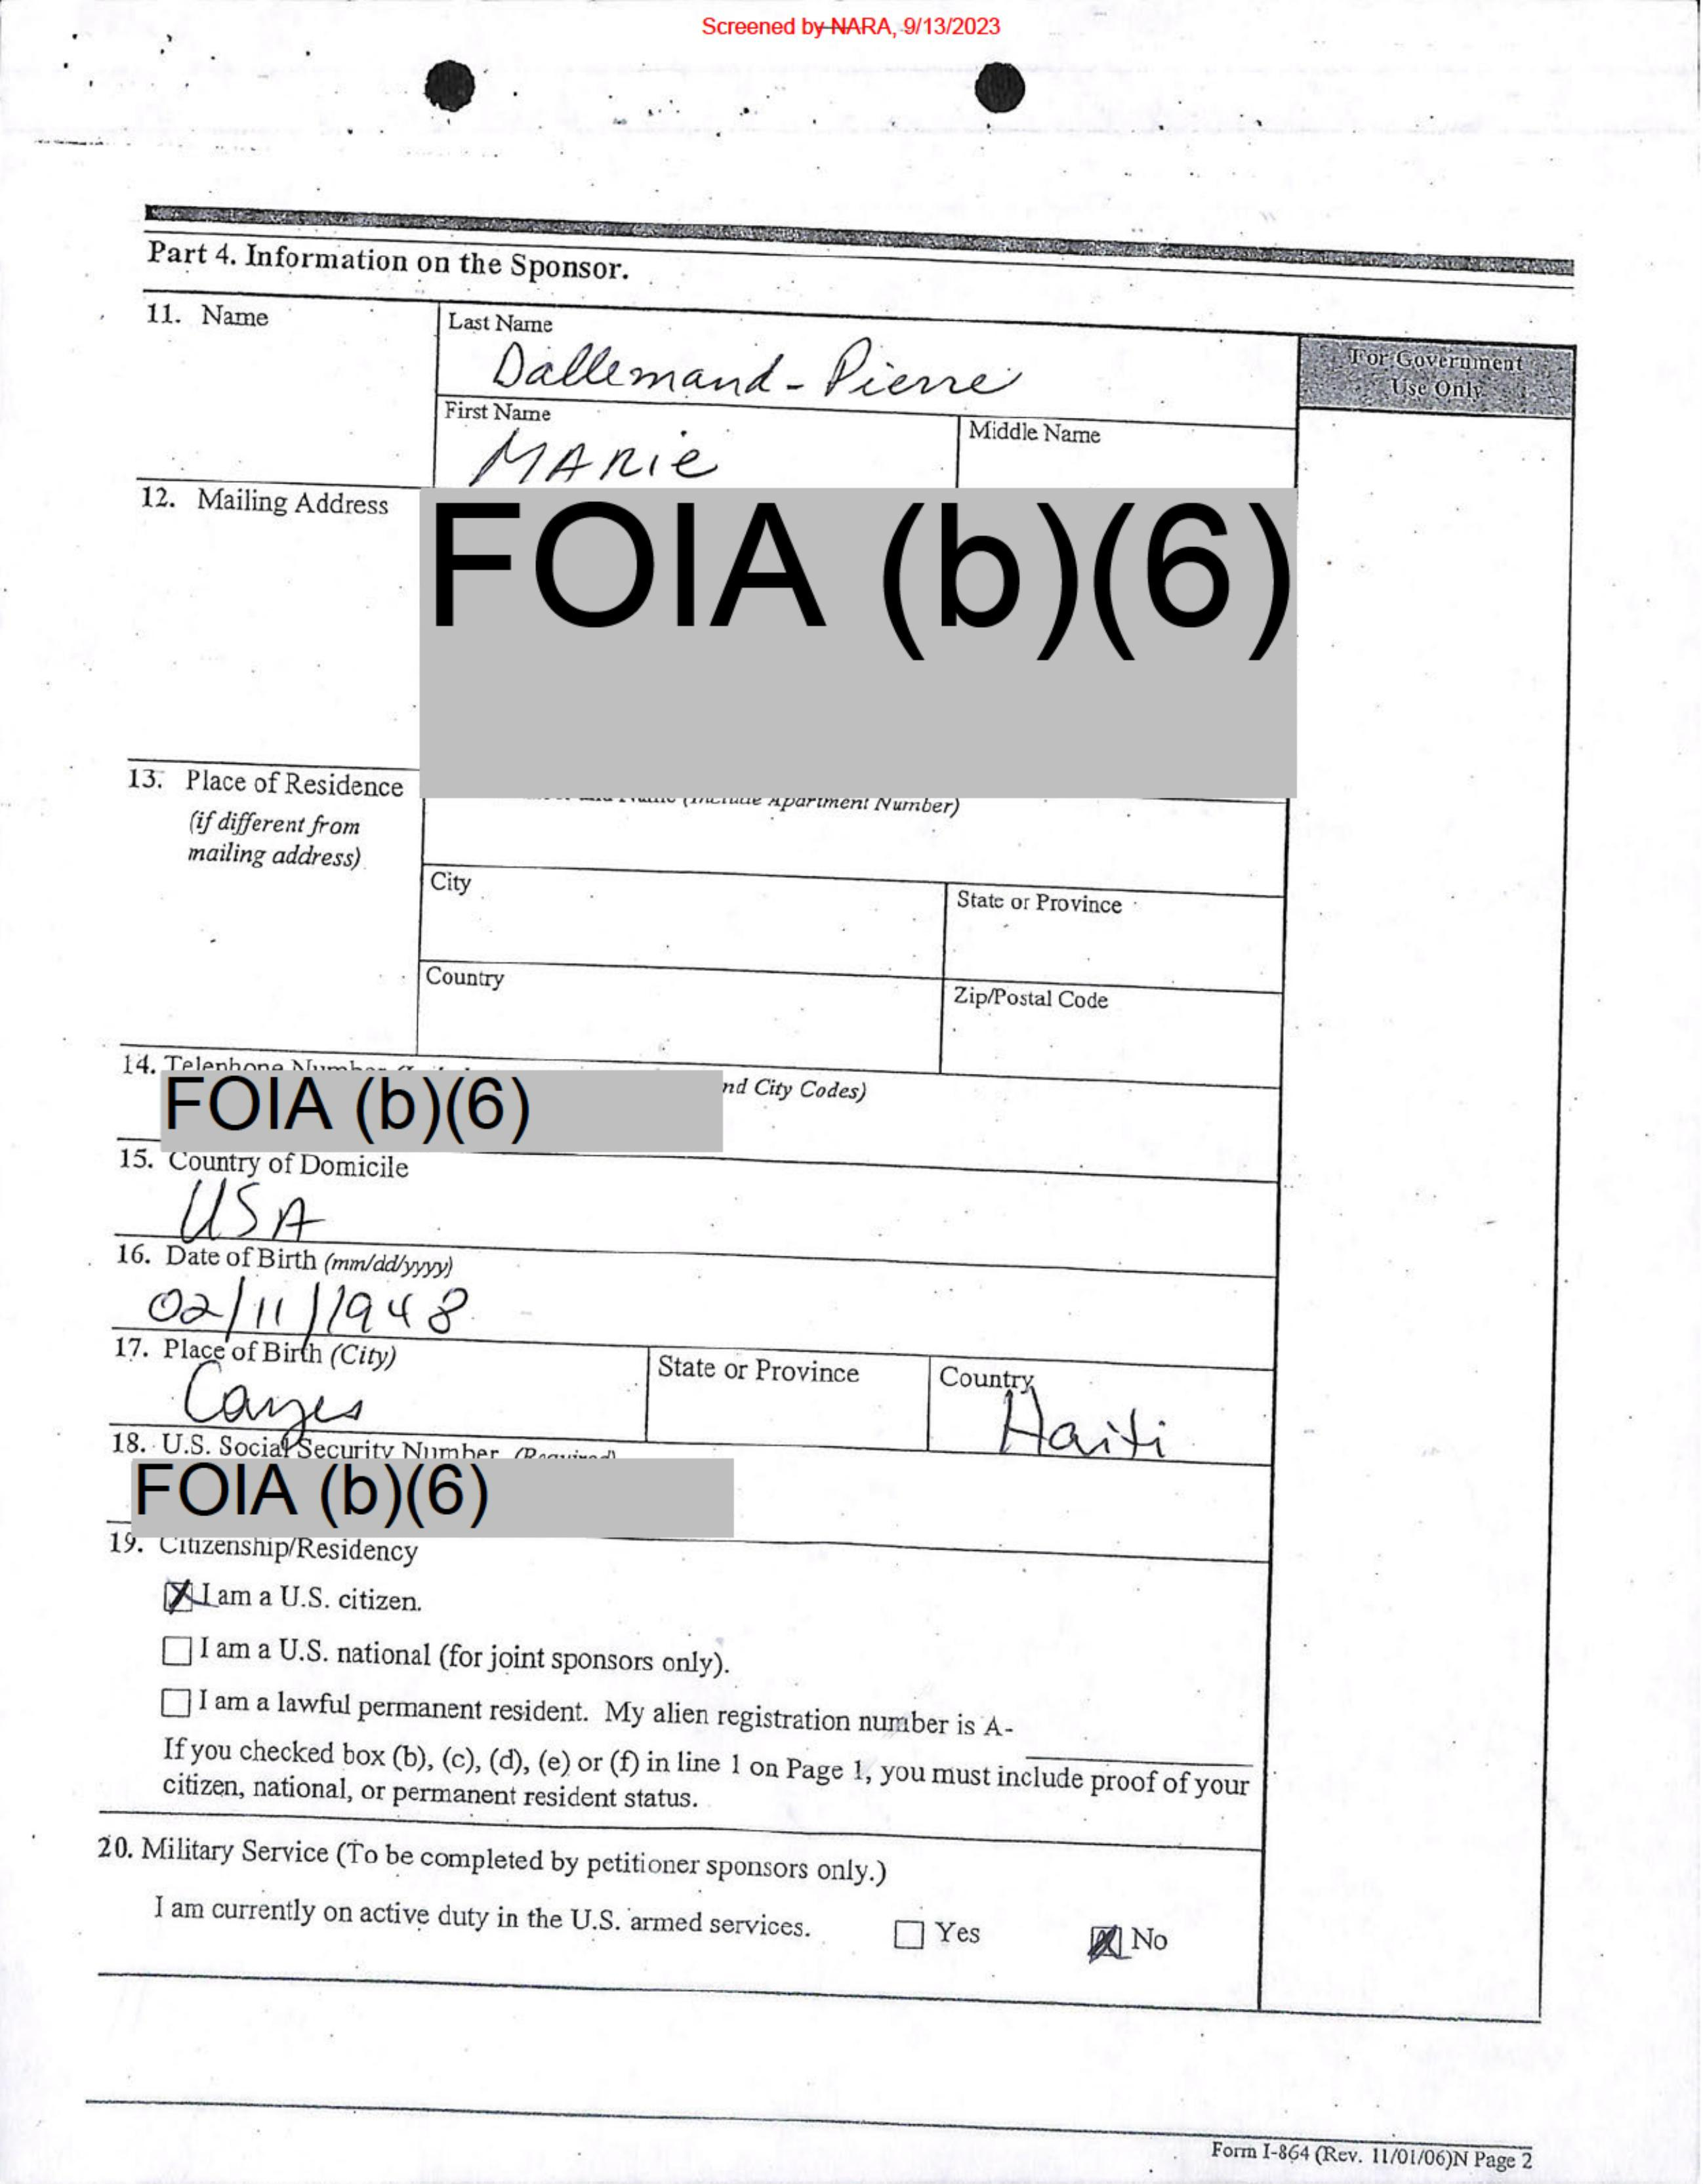 Screened by NARA, 9/13/2023
Part 4. Information on the Sponsor.
11. Name
Last Name
Dallemand-Pierre
For Government
Use Only
First Name
MARie
Middle Name
12. Mailing Address
FOIA (b)(6)
13. Place of Residence
(if different from
mailing address)
(Include Apartment Number)
City
State or Province
Country
Zip/Postal Code
14. Telephone Number
FOIA (b)(6)
nd City Codes)
15. Country of Domicile
USA
16. Date of Birth (mm/dd/yyyy)
02/11/1948
17. Place of Birth (City)
Cayes
State or Province
Country
Haiti
18. U.S. Social Security Number (Required)
FOIA (b)(6)
19. Citizenship/Residency
I am a U.S. citizen.
I am a U.S. national (for joint sponsors only).
I am a lawful permanent resident. My alien registration number is A-
If you checked box (b), (c), (d), (e) or (f) in line 1 on Page 1, you must include proof of your
citizen, national, or permanent resident status.
20. Military Service (To be completed by petitioner sponsors only.)
I am currently on active duty in the U.S. armed services.
Yes
No
Form I-864 (Rev. 11/01/06)N Page 2